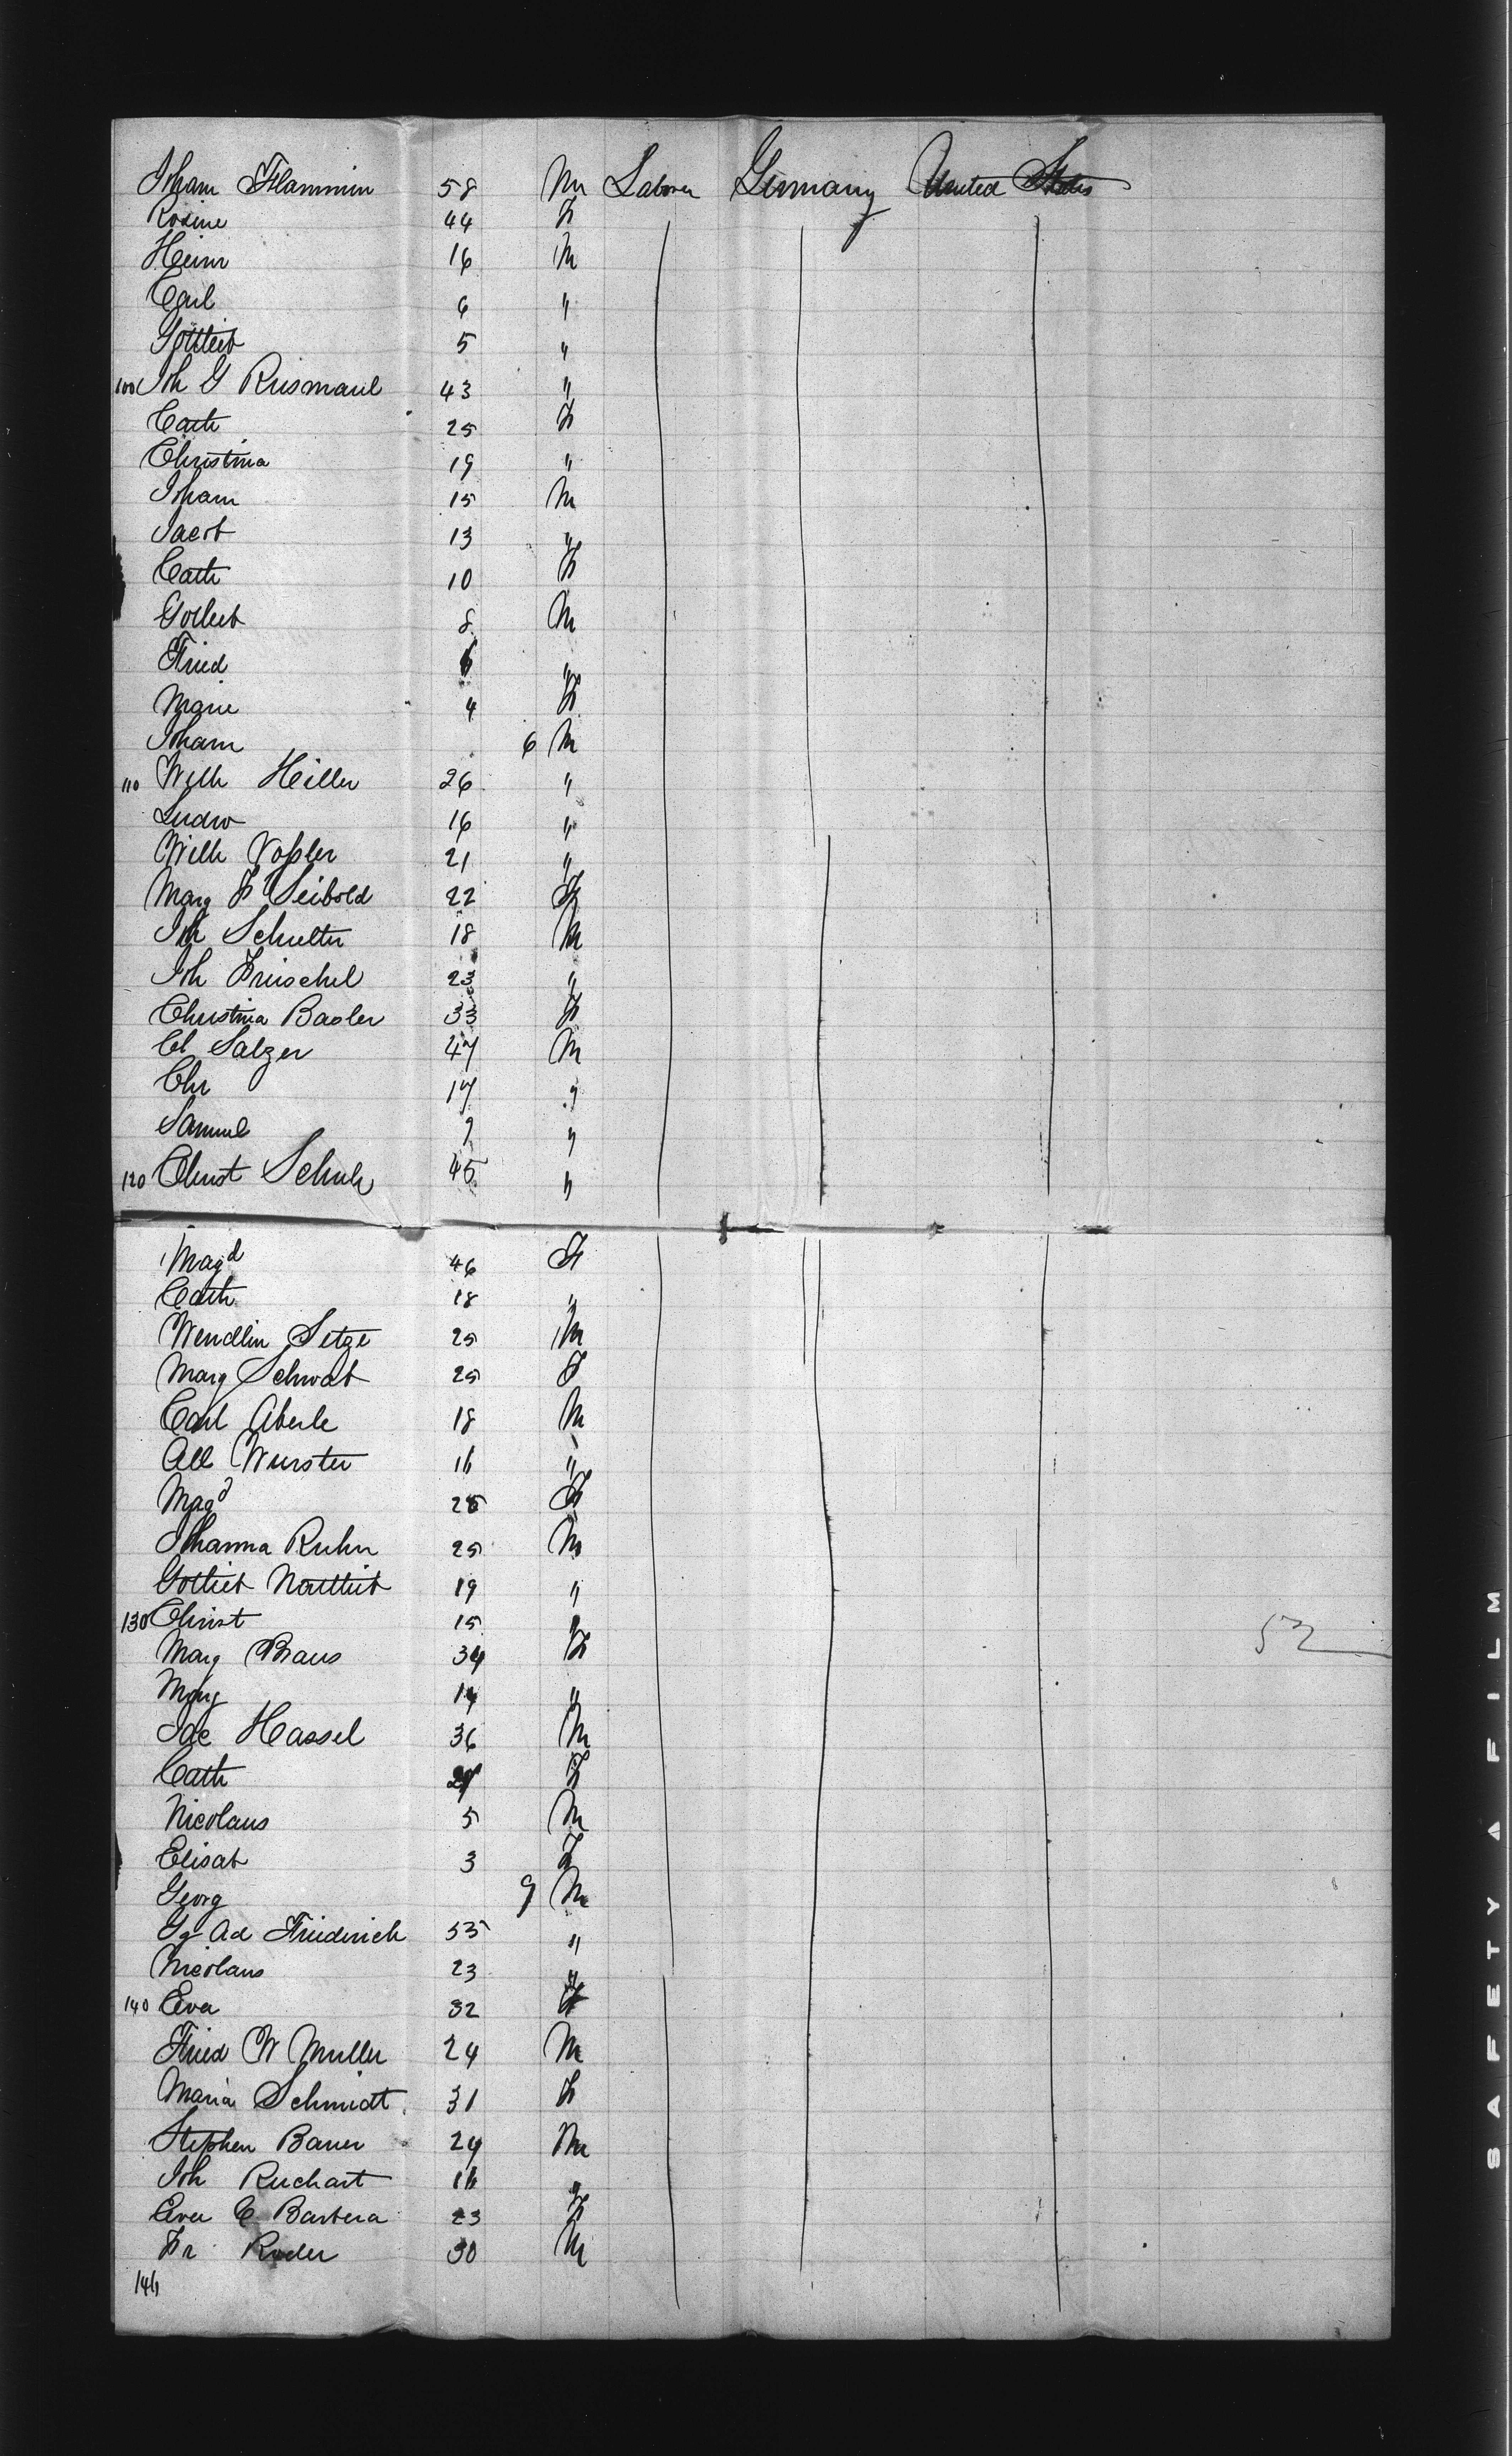 Joham Flammim 58 M Laborer Germany United States
Rosine 44 F
Heinr 16 M
Carl 6 "
Gottlieb 5 "
100 Joh G Riesmaul 43 "
Cath 25 F
Christina 19 "
Joham 15 M
Jacob 13 "
Cath 10 F
Gotlieb 8 M
Fried 6 "
Marie 4 F
Joham 6 M
110 Wilh Hiller 26 "
Ludw 16 "
Wilh Voßler 21 "
Marg F Seibold 22 F
Joh Schulter 18 M
Joh Frieschel 23 "
Christina Basler 33 F
Cl Salzer 47 M
Chr 17 "
Samuel 9 "
120 Christ Schuh 45 "
Magd 46 F
Cath 18 "
Wendlin Setze 25 M
Marg Schwab 25 F
Carl Aberle 18 M
Alb Wurster 16 "
Magd 25 F
Johanna Ruhn 25 M
Gottlieb 19 "
130 Christ 15 "
Marg Braus 34 F
Marg 14 "
Jac Hassel 36 M
Cath F
Nicolaus 5 M
Elisab 3 F
Georg 9 M
Gg Ad Friederich 53 "
Nicolaus 23 "
140 Eva 32 F
Fried W Muller 24 M
Maria Schmidt 31 F
Stephen Bauer 24 M
Joh Ruchart 16 "
Eva C Barbera 23 F
Fr Roder 30 M
146
53
SAFETY A FILM